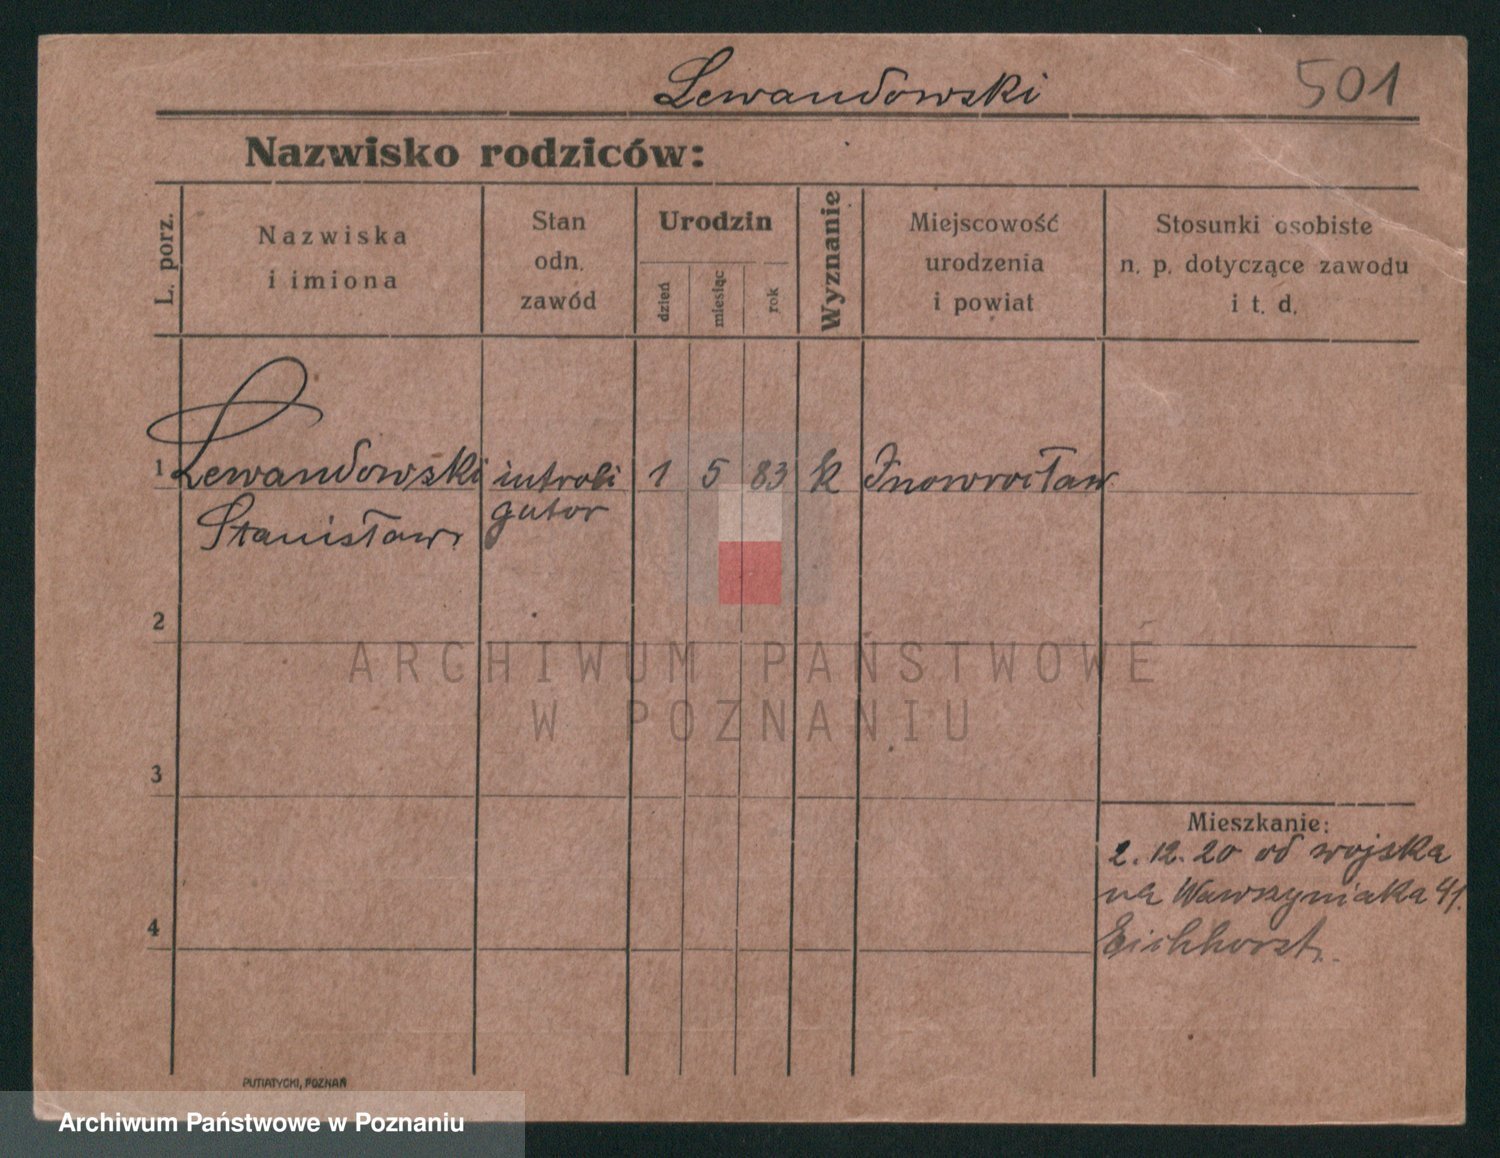 Lewandowski
501
Nazwisko rodziców:
L. porz.
Nazwiska
i imiona
Stan
odn.
zawód
Urodzin
dzień
miesiąc
rok
Wyznanie
Miejscowość
urodzenia
i powiat
Stosunki osobiste
n. p. dotyczące zawodu
i t. d.
1 Lewandowski introli 1 5 83 k Inowrocław
Stanisław gator
2
ARCHIWUM PAŃSTWOWE
W POZNANIU
3
Mieszkanie:
2. 12. 20 od wojska
na Wawrzyniaka 41.
4
Eichhorst.
PUTIATYCKI, POZNAŃ
Archiwum Państwowe w Poznaniu